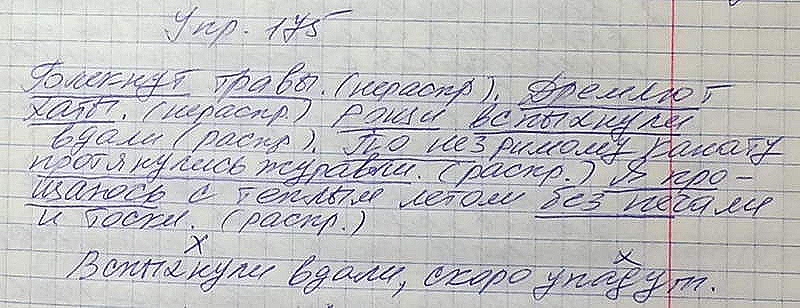 Упр. 175
Блекнут травы. (нераспр). Дремлют
хаты. (нераспр.) Рощи вспыхнули
вдали (распр). По незримому канату
протянулись журавли. (распр.) Я про-
щаюсь с теплым летом без печали
и тоски. (распр.)
Вспыхнули вдали, скоро упадут.